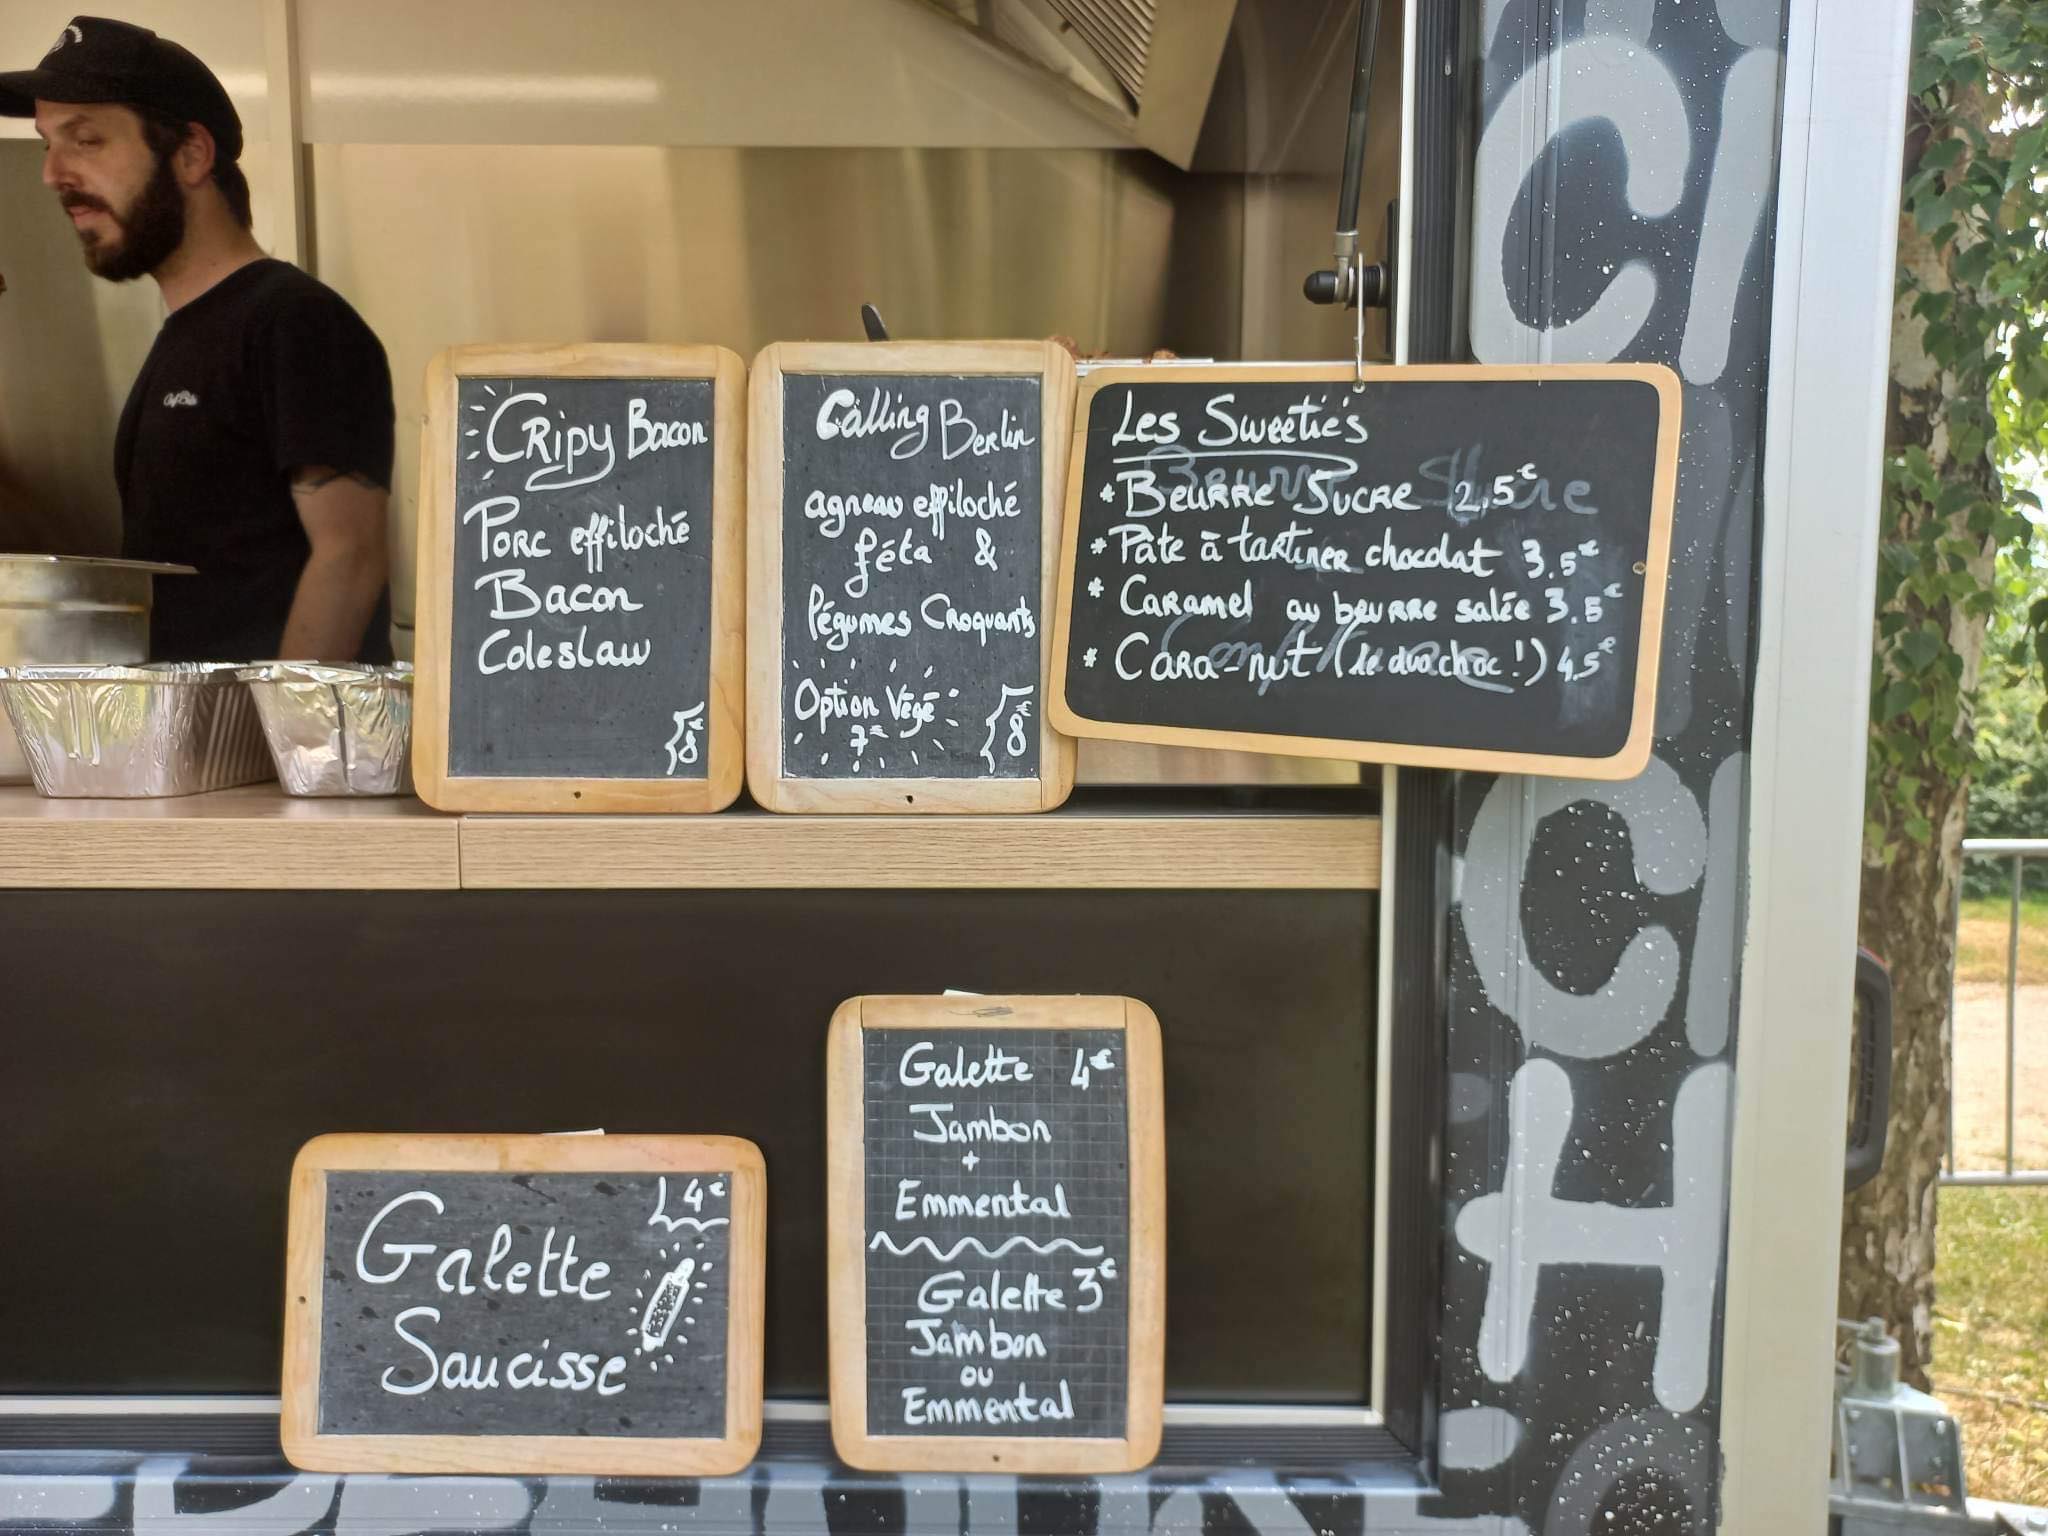 Cripy Bacon
Porc effiloché
Bacon
Coleslaw
8€
Calling Berlin
agneau effiloché
féta &
légumes Croquants
Option Végé
7€
8€
Les Sweeties
* Beurre Sucre 2,5€
* Pâte à tartiner chocolat 3,5€
* Caramel au beurre salée 3.5€
* Cara-nut (le duo choc !) 4,5€
Galette
Saucisse
4€
Galette 4€
Jambon
+
Emmental
Galette 3€
Jambon
ou
Emmental